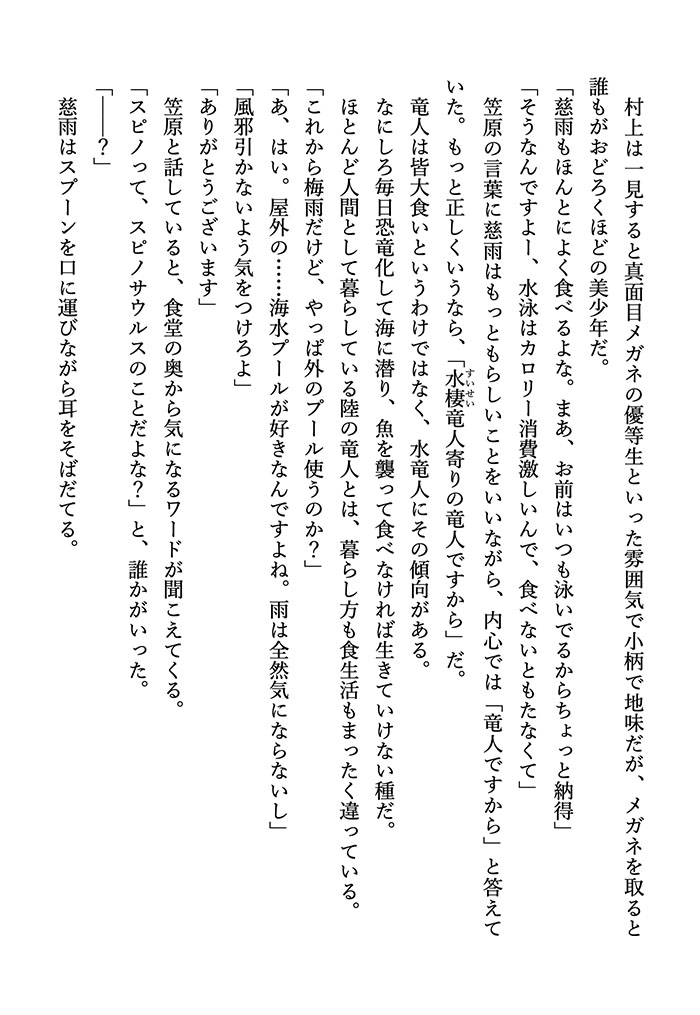 村上は一見すると真面目メガネの優等生といった雰囲気で小柄で地味だが、メガネを取ると
誰もがおどろくほどの美少年だ。
「慈雨もほんとによく食べるよな。まあ、お前はいつも泳いでるからちょっと納得」
「そうなんですよー、水泳はカロリー消費激しいんで、食べないともたなくて」
笠原の言葉に慈雨はもっともらしいことをいいながら、内心では「竜人ですから」と答えて
いた。もっと正しくいうなら、「水棲竜人寄りの竜人ですから」だ。
すいせい
竜人は皆大食いというわけではなく、水竜人にその傾向がある。
なにしろ毎日恐竜化して海に潜り、魚を襲って食べなければ生きていけない種だ。
ほとんど人間として暮らしている陸の竜人とは、暮らし方も食生活もまったく違っている。
「これから梅雨だけど、やっぱ外のプール使うのか？」
「あ、はい。屋外の……海水プールが好きなんですよね。雨は全然気にならないし」
「風邪引かないよう気をつけろよ」
「ありがとうございます」
笠原と話していると、食堂の奥から気になるワードが聞こえてくる。
「スピノって、スピノサウルスのことだよな？」と、誰かがいった。
「――？」
慈雨はスプーンを口に運びながら耳をそばだてる。